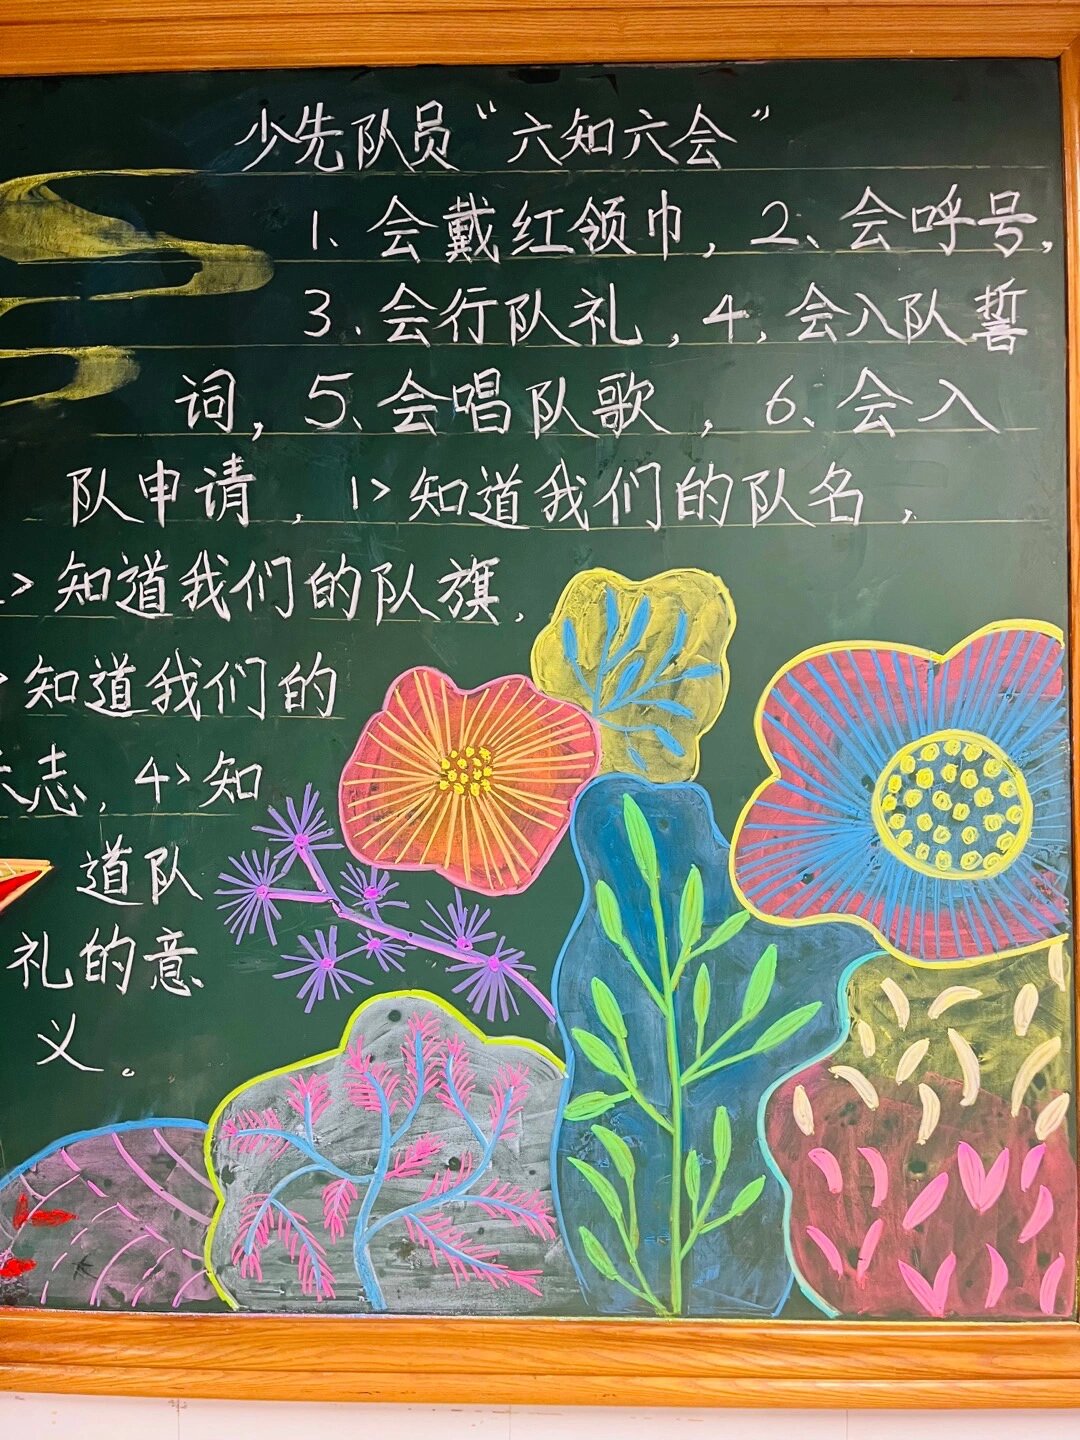 少先队员“六知六会”
1、会戴红领巾，2、会呼号，
3、会行队礼，4、会入队誓
词，5、会唱队歌，6、会入
队申请，1>知道我们的队名，
>知道我们的队旗，
知道我们的
志，4>知
道队
礼的意
义。